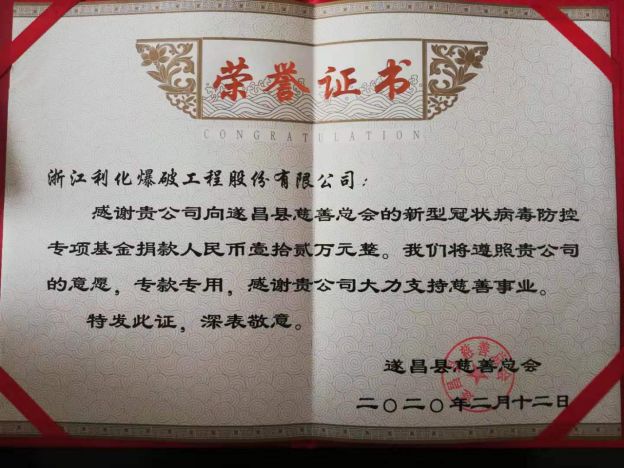 荣誉证书
CONGRATULATION
浙江利化爆破工程股份有限公司：
感谢贵公司向遂昌县慈善总会的新型冠状病毒防控
专项基金捐款人民币壹拾贰万元整。我们将遵照贵公司
的意愿，专款专用，感谢贵公司大力支持慈善事业。
特发此证，深表敬意。
遂昌县慈善总会
二〇二〇年二月十二日